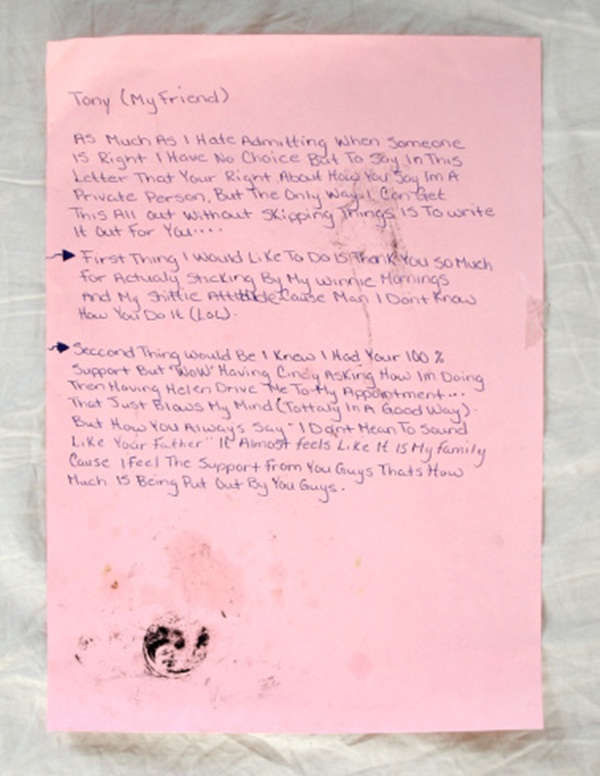 Tony (My Friend)
As Much As I Hate Admitting When Someone
Is Right I Have No Choice But To Say In This
Letter That Your Right About How You Say Im A
Private Person, But The Only Way I Can Get
This All out Without Skipping Things Is To write
It Out For You....
First Thing I Would Like To Do Is Thank You So Much
For Actualy Sticking By My Winnie Mornings
And My Shittie Attitude Cause Man I Dont Know
How You Do It (LoL).
Seccond Thing Would Be I Knew I Had Your 100 %
Support But "WoW" Having Cindy Asking How Im Doing
Then Having Helen Drive Me To My Appointment...
That Just Blows My Mind (Tottaly In A Good Way).
But How You Always Say "I Dont Mean To Sound
Like Your Father" It Almost feels Like It Is My family
Cause I Feel The Support From You Guys Thats How
Much Is Being Put Out By You Guys.